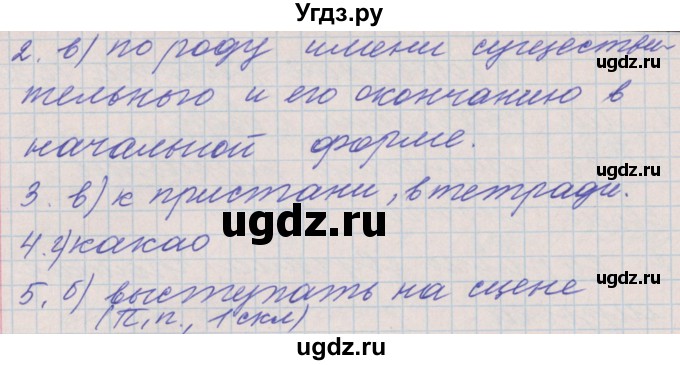 Угдз.ру
2. в) по роду имени существи-
тельного и его окончанию в
начальной форме.
ugdz.ru
3. в) к пристани, в тетради.
ugdz.ru
ugdz.ru
4. г) какао
5. б) выступать на сцене
ugdz.ru
(П.п., 1 скл)
ugdz.ru